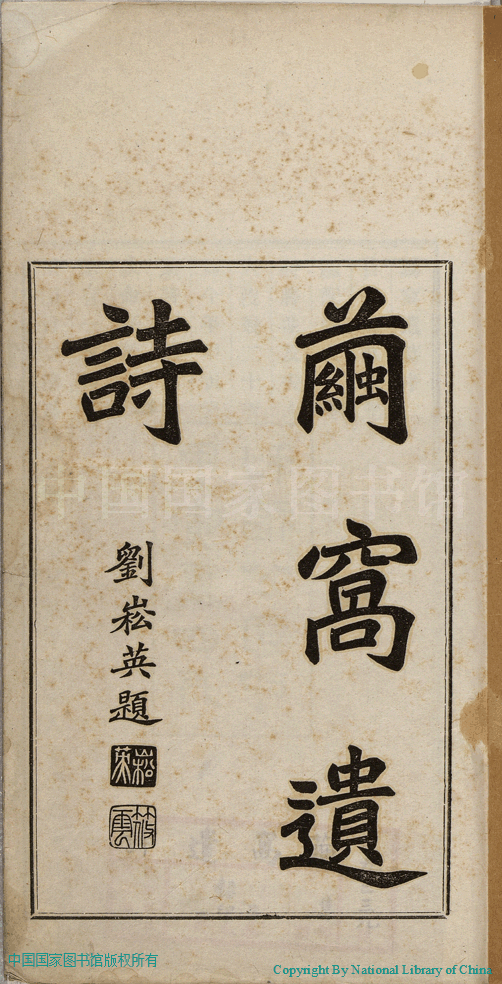 繭窩遺
詩
劉崧英題
崧英
筱雲
中国国家图书馆
中国国家图书馆版权所有
Copyright By National Library of China